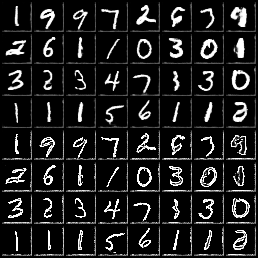 1 9 9 7 2 6 7 9
2 6 1 1 0 3 0 1
3 2 3 4 7 8 3 0
1 1 1 5 6 1 1 2
1 9 9 7 2 6 7 9
2 6 1 1 0 3 0 1
3 2 3 4 7 8 3 0
1 1 1 5 6 1 1 2